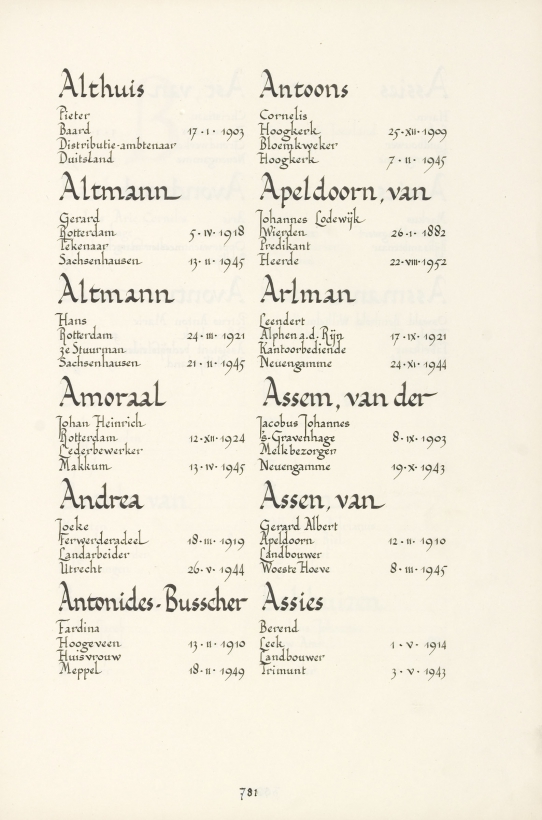 Althuis
Pieter
Baard 17·I·1903
Distributie-ambtenaar
Duitsland
Altmann
Gerard
Rotterdam 5·IV·1918
Tekenaar
Sachsenhausen 13·II·1945
Altmann
Hans
Rotterdam 24·III·1921
3e Stuurman
Sachsenhausen 21·II·1945
Amoraal
Johan Heinrich
Rotterdam 12·XII·1924
Lederbewerker
Makkum 13·IV·1945
Andrea
Joeke
Ferwerderadeel 18·III·1919
Landarbeider
Utrecht 26·V·1944
Antonides-Busscher
Fardina
Hoogeveen 13·II·1910
Huisvrouw
Meppel 18·II·1949
Antoons
Cornelis
Hoogkerk 25·XII·1909
Bloemkweker
Hoogkerk 7·II·1945
Apeldoorn, van
Johannes Lodewijk
Wierden 26·I·1882
Predikant
Heerde 22·VIII·1952
Arlman
Leendert
Alphen a.d. Rijn 17·IX·1921
Kantoorbediende
Neuengamme 24·XI·1944
Assem, van der
Jacobus Johannes
's-Gravenhage 8·IX·1903
Melkbezorger
Neuengamme 19·X·1943
Assen, van
Gerard Albert
Apeldoorn 12·II·1910
Landbouwer
Woeste Hoeve 8·III·1945
Assies
Berend
Leek 1·V·1914
Landbouwer
Trimunt 3·V·1943